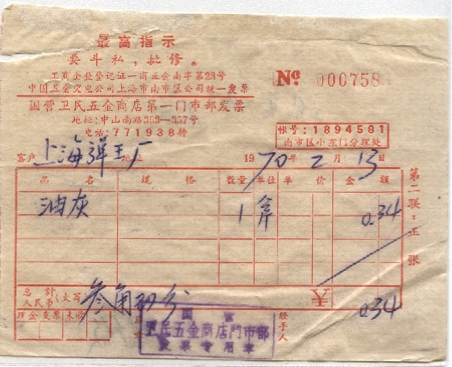 最高指示
要斗私,批修。
工商企业登记证-商五金南字第23号
中国五金交电公司上海市南市区公司统一发票
国营卫民五金商店第一门市部发票
地址:中山南路353—357号
电话:771938转
№ 000758
帐号:1894581
南市区小东门分理处
客户 上海弹 厂 1970年2月13日
品名 规格 数量 单位 单价 金额
油灰 1 0.34
第二联:正张
总计人民币(大写) 叁角 分 0.34
现金 支票 未收 经手人
国营
卫民五金商店门市部
发票专用章